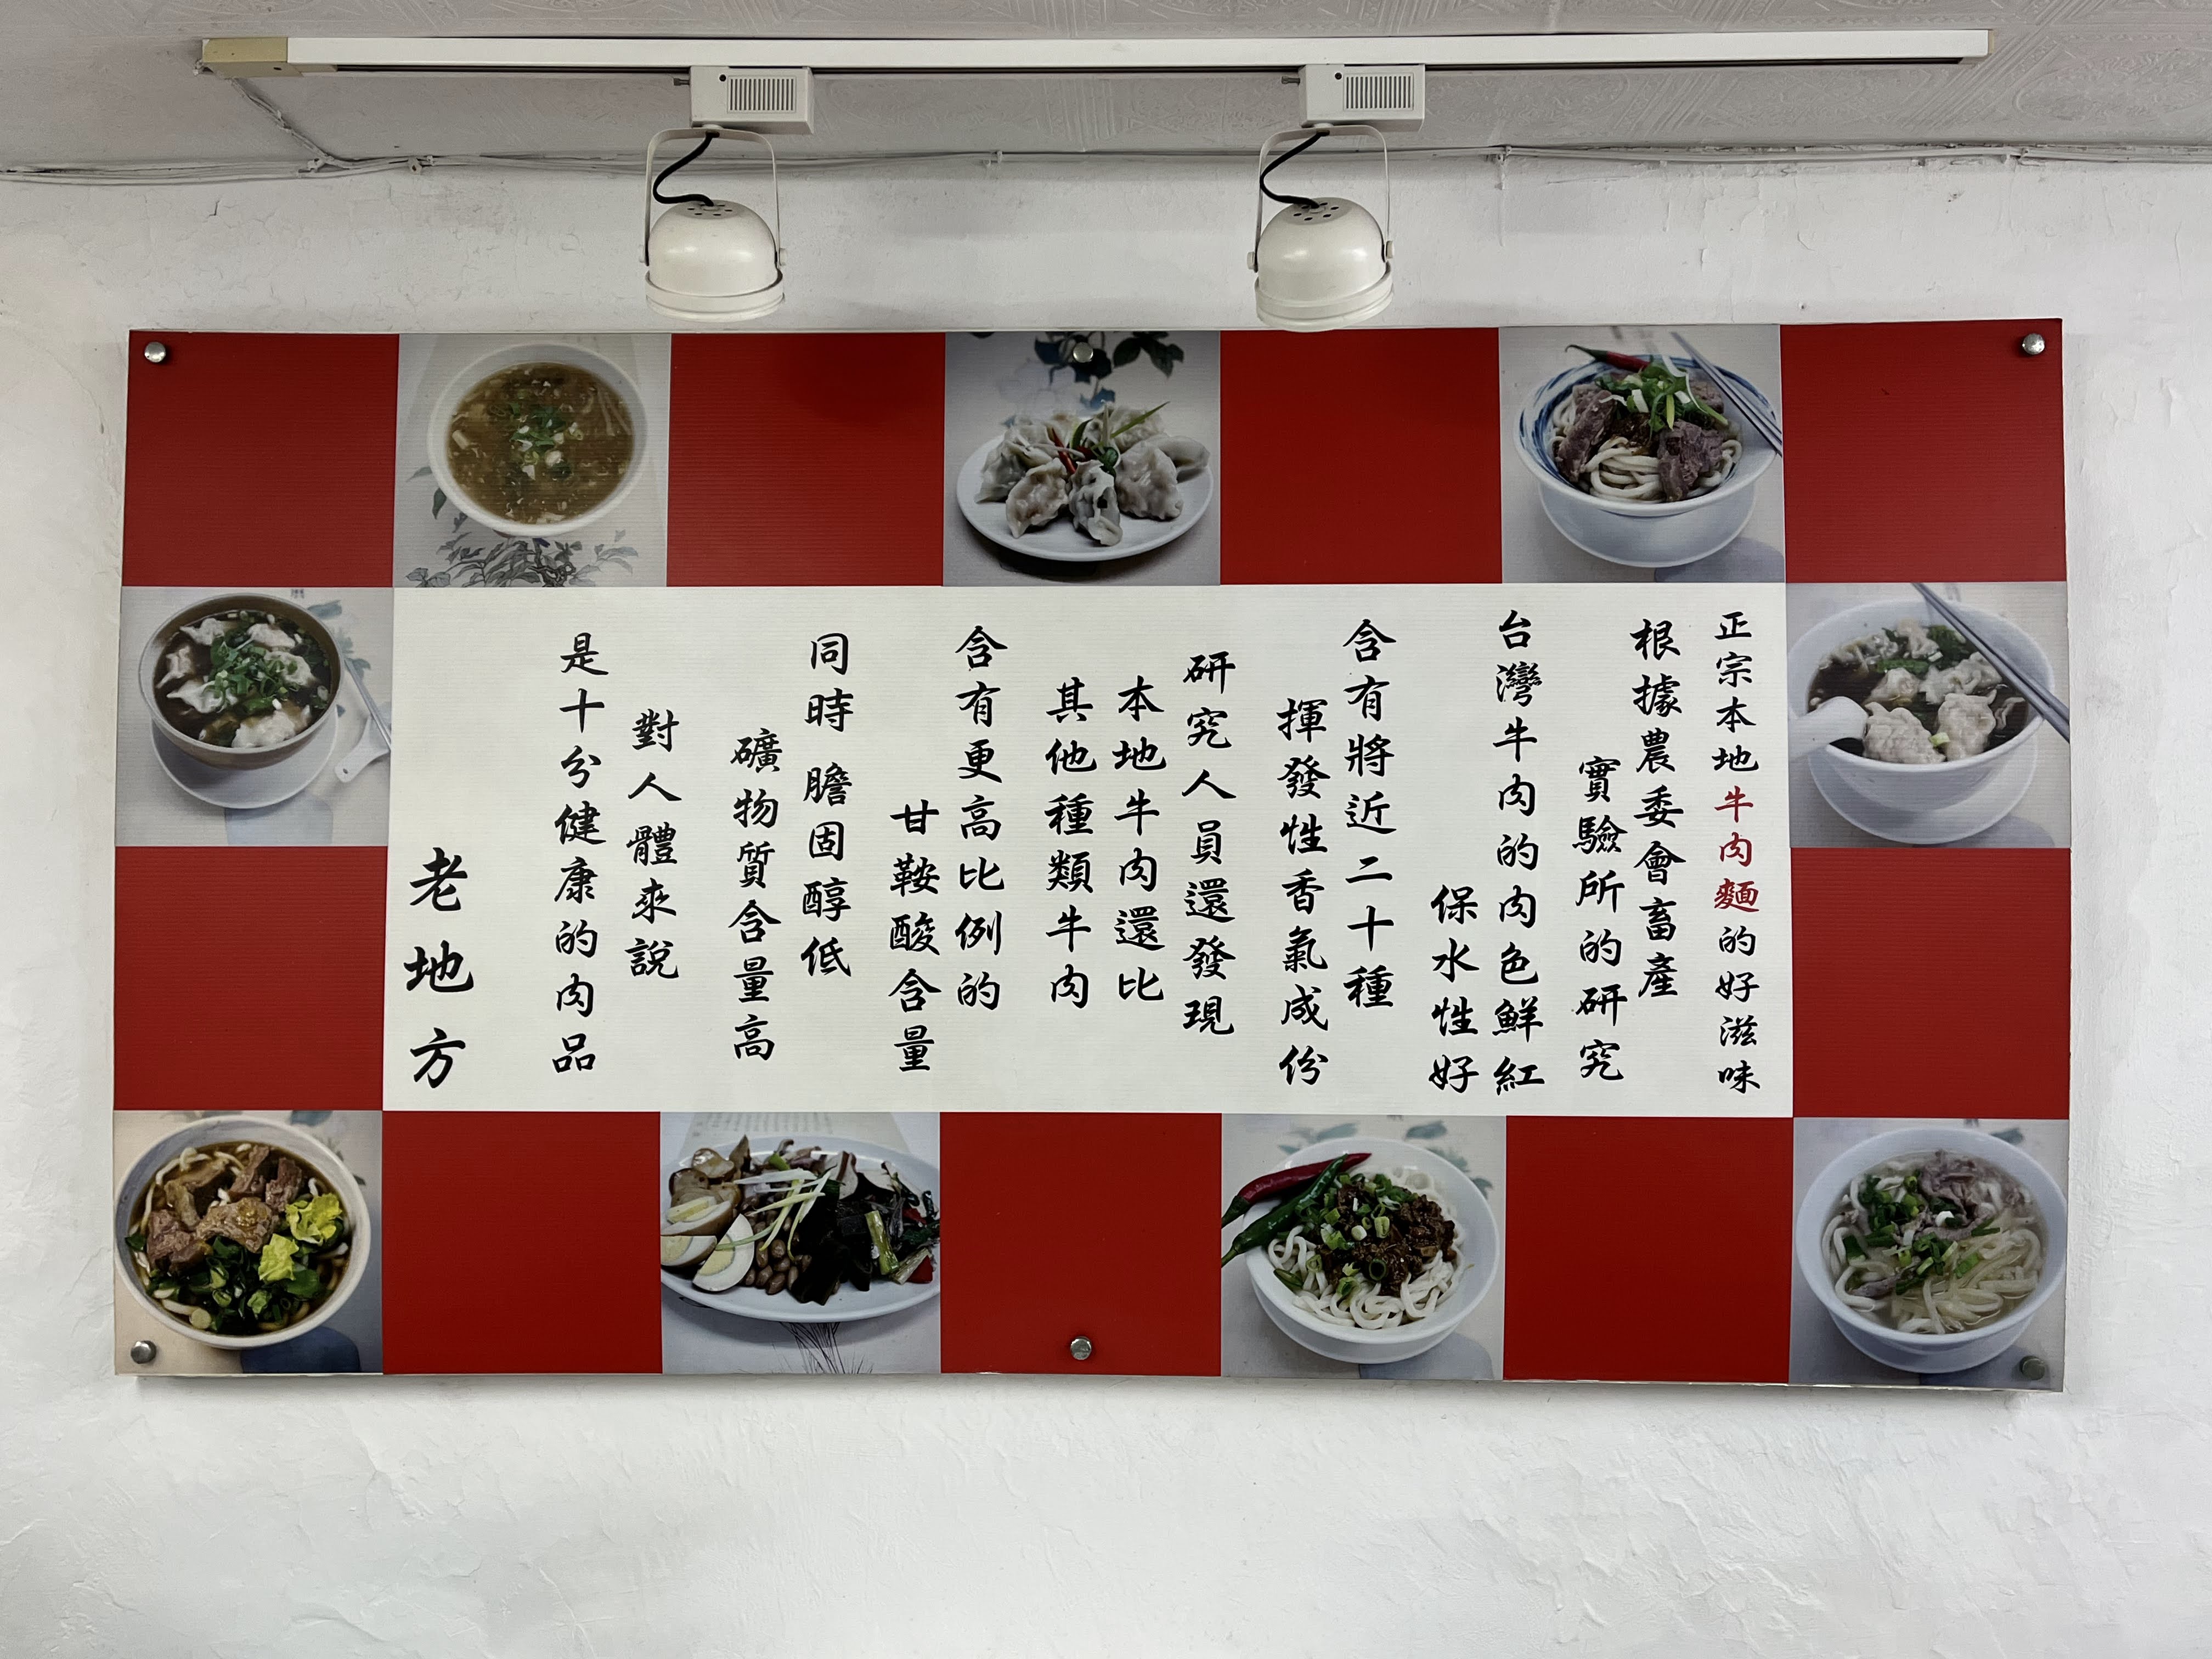 正宗本地牛肉麵的好滋味
根據農委會畜產
實驗所的研究
台灣牛肉的肉色鮮紅
保水性好
含有將近二十種
揮發性香氣成份
研究人員還發現
本地牛肉還比
其他種類牛肉
含有更高比例的
甘鞍酸含量
同時膽固醇低
礦物質含量高
對人體來說
是十分健康的肉品
老地方